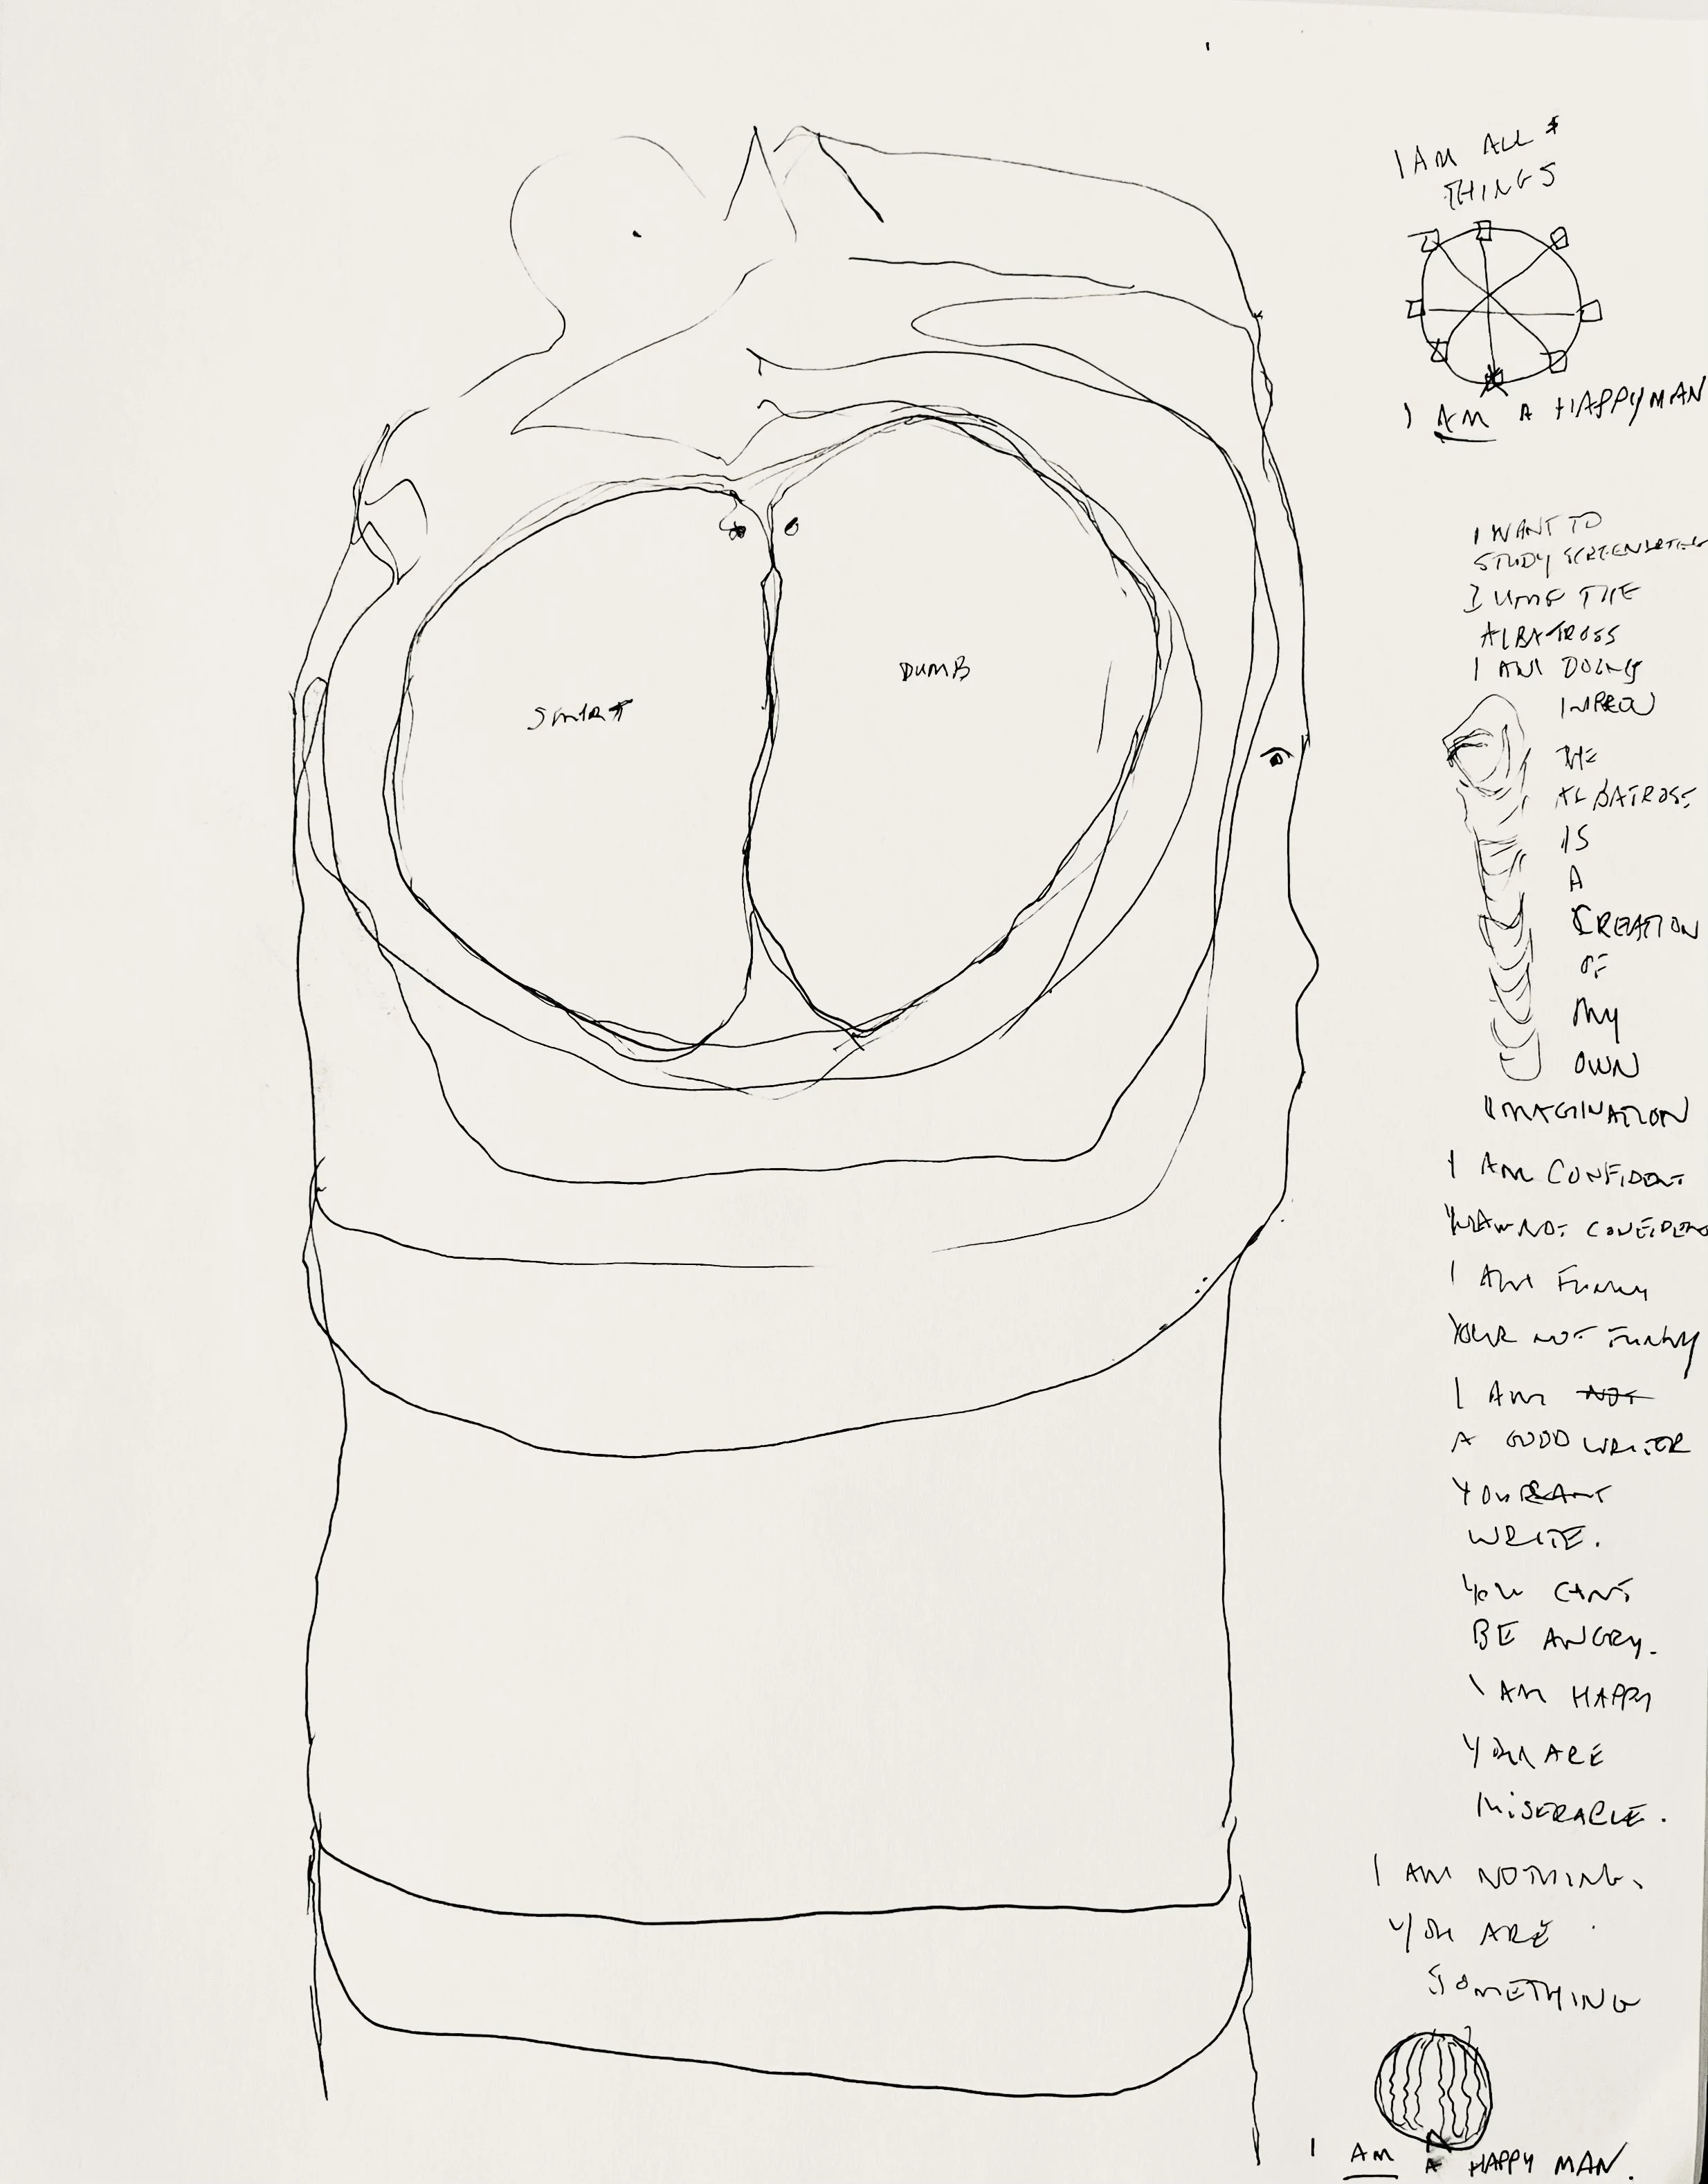 I AM ALL
THINGS
I AM A HAPPY MAN
I WANT TO
STUDY
THE
ALBATROSS
I AM DOING
IMPROV
THE
ALBATROSS
IS
A
CREATION
OF
MY
OWN
IMAGINATION
I AM CONFIDENT
NOT CONFIDENT
I AM FUNNY
YOUR NOT FUNNY
I AM NOT
A GOOD WRITER
YOU CANT
WRITE.
YOU CANT
BE ANGRY.
I AM HAPPY
YOU ARE
MISERABLE.
I AM NOTHING.
YOU ARE
SOMETHING
I AM A HAPPY MAN.
SMART
DUMB